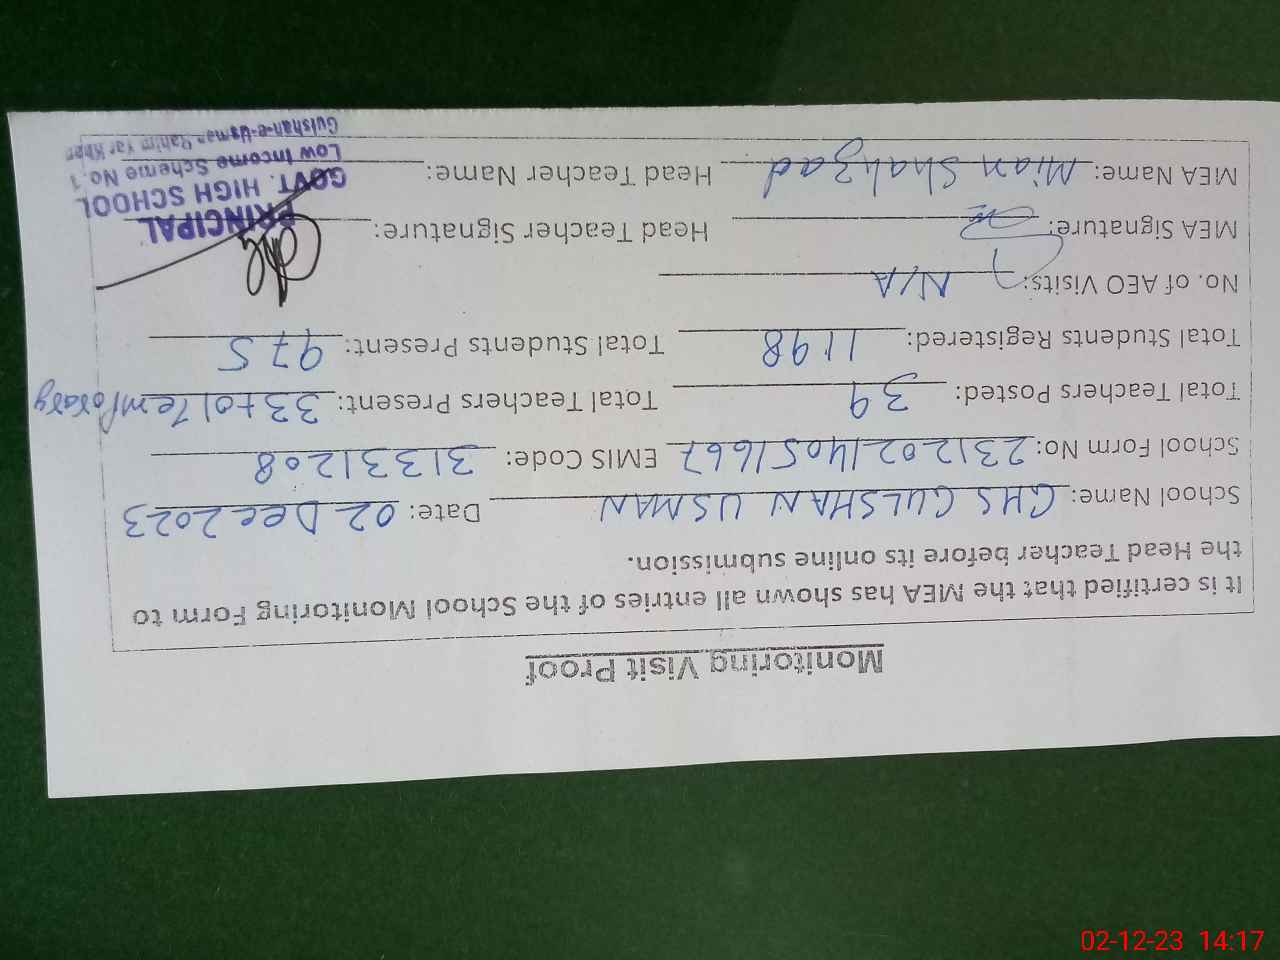 Monitoring Visit Proof
It is certified that the MEA has shown all entries of the School Monitoring Form to
the Head Teacher before its online submission.
School Name: GHS GULSHAN USMAN Date: 02 Dec 2023
School Form No: 23120214051667 EMIS Code: 31331208
Total Teachers Posted: 39 Total Teachers Present: 33+01 Temporary
Total Students Registered: 1198 Total Students Present: 975
No. of AEO Visits: N/A
MEA Signature: Head Teacher Signature:
MEA Name: Mian Shahzad Head Teacher Name:
PRINCIPAL
GOVT. HIGH SCHOOL
Low Income Scheme No. 1
Gulshan-e-Usman Rahim Yar Khan
02-12-23 14:17